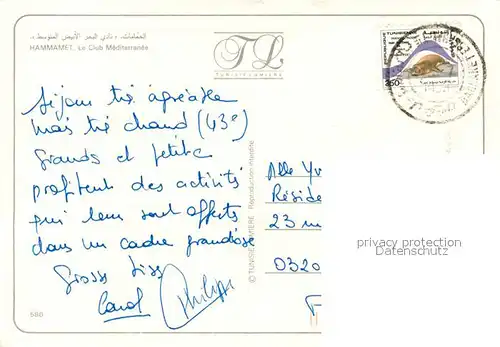 الحمّامات، «نادي البحر الأبيض المتوسط».
HAMMAMET, Le Club Méditerranée
TL
TUNISIE LUMIERE
350
Séjour très agréable
mais très chaud (43°)
Grands et petits
profitent des activités
qui leur sont offerts
dans un cadre grandiose
Gross Biss
Carol Philippe
© TUNISIE LUMIERE Reproduction interdite
Mlle Yv
Réside
23
0320
F
privacy protection
Datenschutz
586